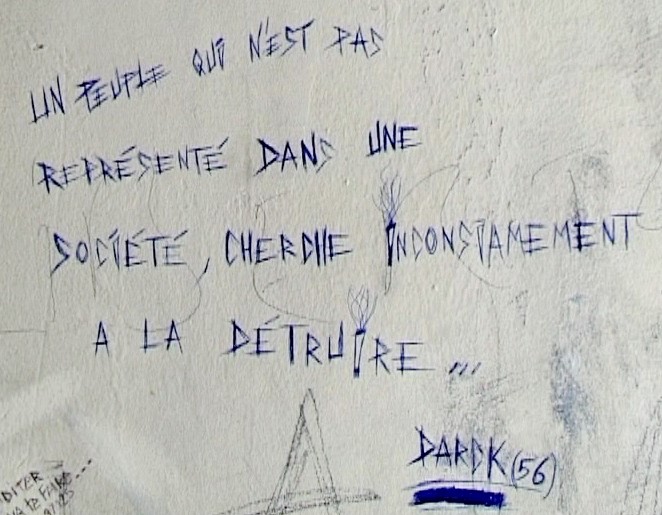 UN PEUPLE QUI N'EST PAS
REPRÉSENTÉ DANS UNE
SOCIÉTÉ, CHERCHE INCONSIAMEMENT
A LA DÉTRUIRE...
DARDK (56)